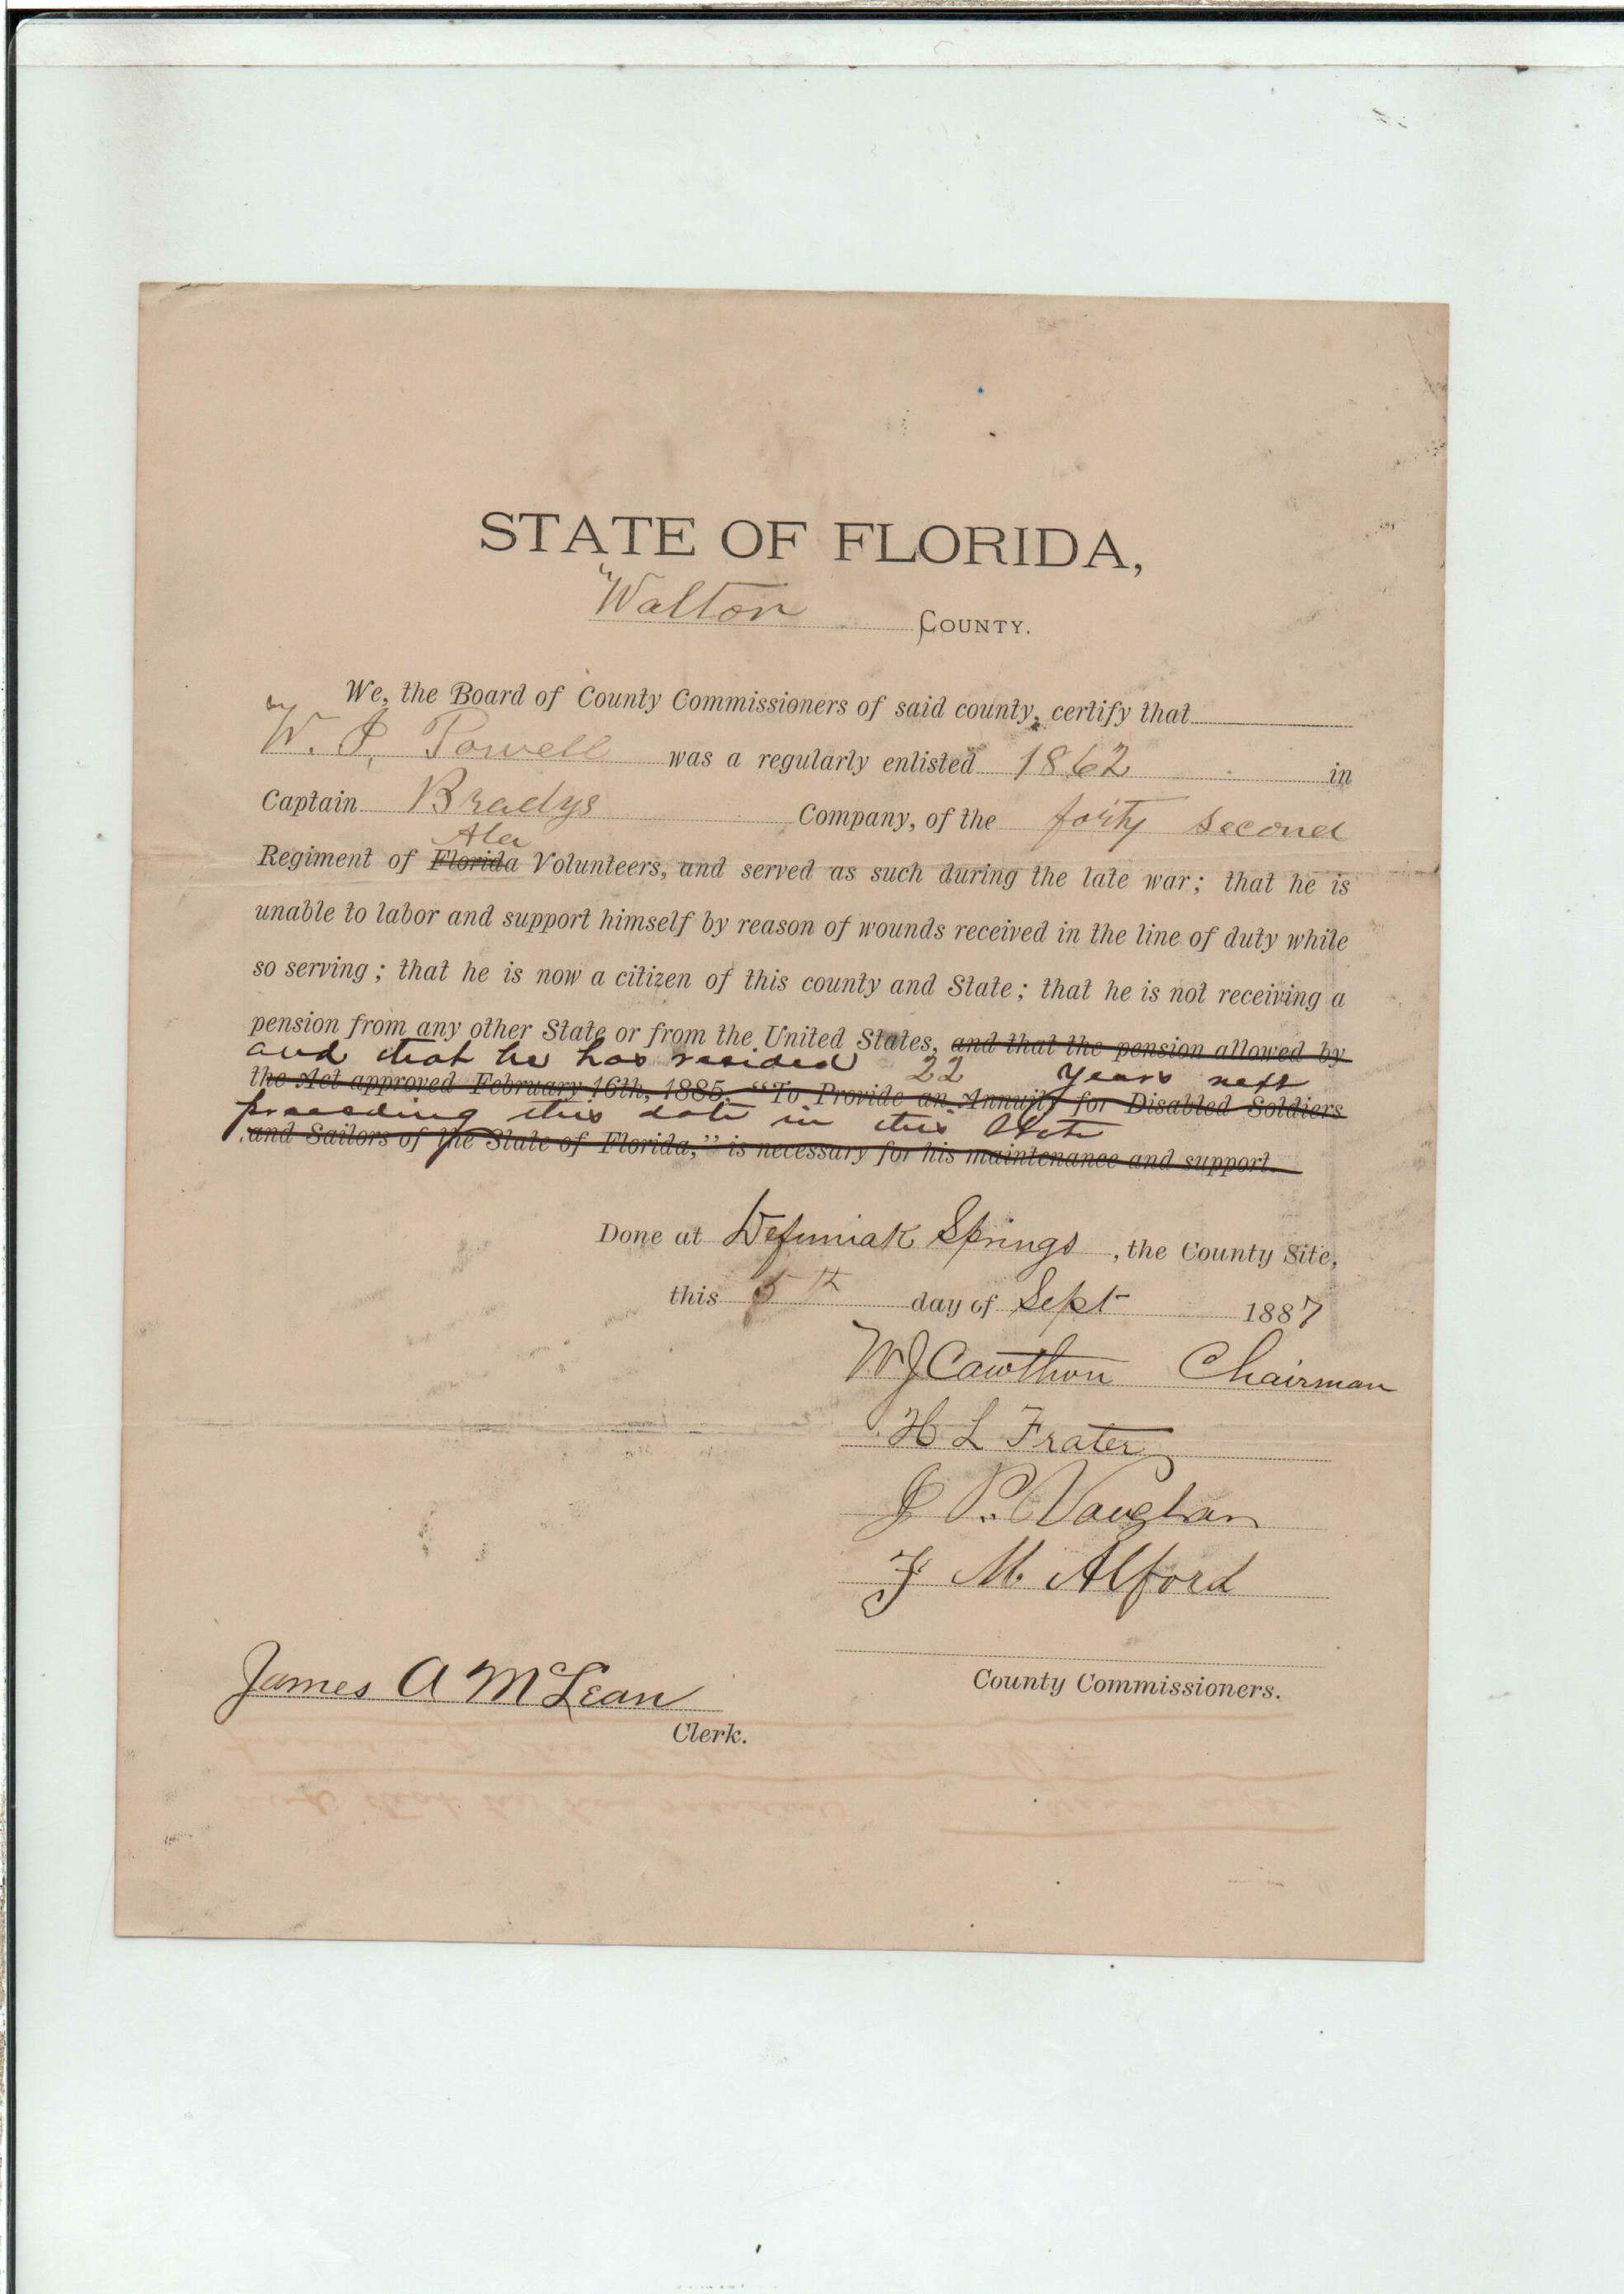 STATE OF FLORIDA,
Walton COUNTY.
We, the Board of County Commissioners of said county, certify that
W. J. Powell was a regularly enlisted 1862 in
Captain Bradys Company, of the forty second
Ala
Regiment of Florida Volunteers, and served as such during the late war; that he is
unable to labor and support himself by reason of wounds received in the line of duty while
so serving; that he is now a citizen of this county and State; that he is not receiving a
pension from any other State or from the United States, and that the pension allowed by
and that he has resided 22 years next
the Act approved February 16th, 1885, "To Provide an Annuity for Disabled Soldiers
preceeding this date in this State
and Sailors of the State of Florida," is necessary for his maintenance and support.
Done at Defuniak Springs, the County Site,
this 5th day of Sept 1887
W J Cawthon Chairman
H L Frater
J P. Vaughan
F M. Alford
County Commissioners.
James A McLean
Clerk.